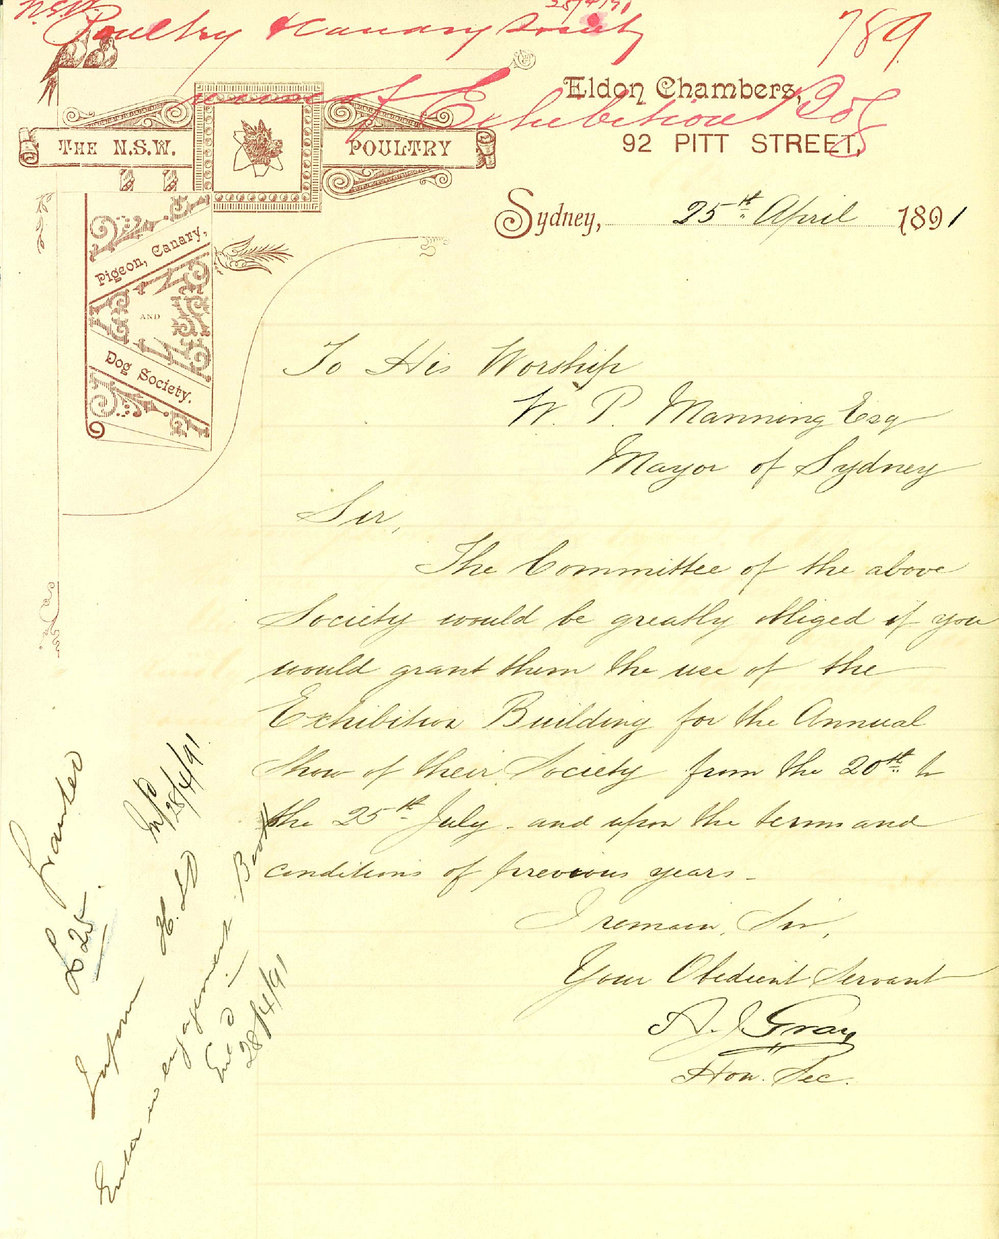 N.S.W. 28/4/91
Poultry & Canary Society 789
use of Exhibition
Eldon Chambers,
92 PITT STREET,
THE N.S.W. POULTRY
Pigeon, Canary,
AND
Dog Society.
Sydney, 25th April 1891
To His Worship
W. P. Manning Esq
Mayor of Sydney
Sir,
The Committee of the above
Society would be greatly obliged if you
would grant them the use of the
Exhibition Building for the Annual
Show of their Society from the 20th to
the 25th July and upon the terms and
conditions of previous years.
I remain, Sir,
Your Obedient Servant
A. J. Gray
Hon. Sec.
Granted
£25.
Inform
28/4/91
Enter in engagement Book
Ent'd
28/4/91